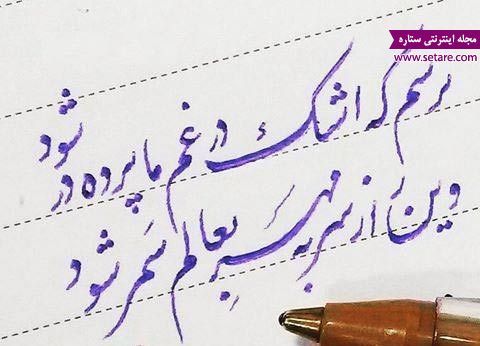 مجله اینترنتی ستاره
www.setare.com
ترسم که اشک در غم ما پرده در شود
وین راز سر به مهر بعالم سمر شود